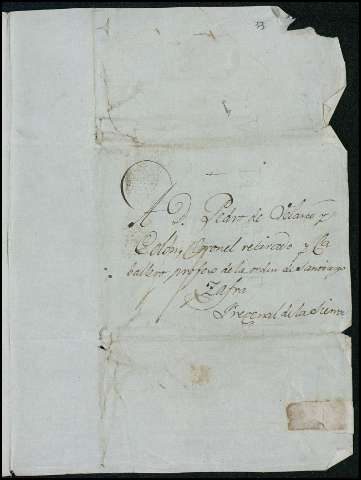 33
A D. Pedro de Velasco y
Colón, Coronel retirado y Ca
ballero profeso de la orden de Santiago
Zafra
Fregenal de la Sierra